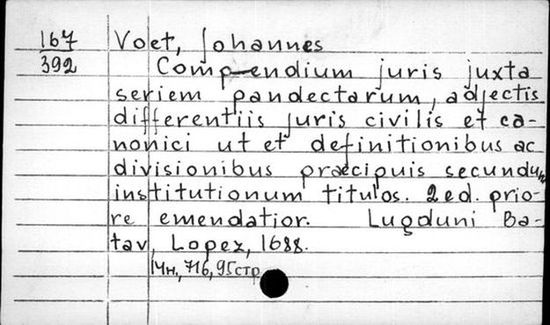 167 Voet, Johannes
392 Compendium juris juxta
seriem pandectarum, adjectis
differentiis juris civilis et ca-
nonici ut et definitionibus ac
divisionibus præcipuis secundum
institutionum titulos. 2 ed. prio-
re emendatior. Lugduni Ba-
tav, Lopez, 1688.
14н, 716, 95 стр